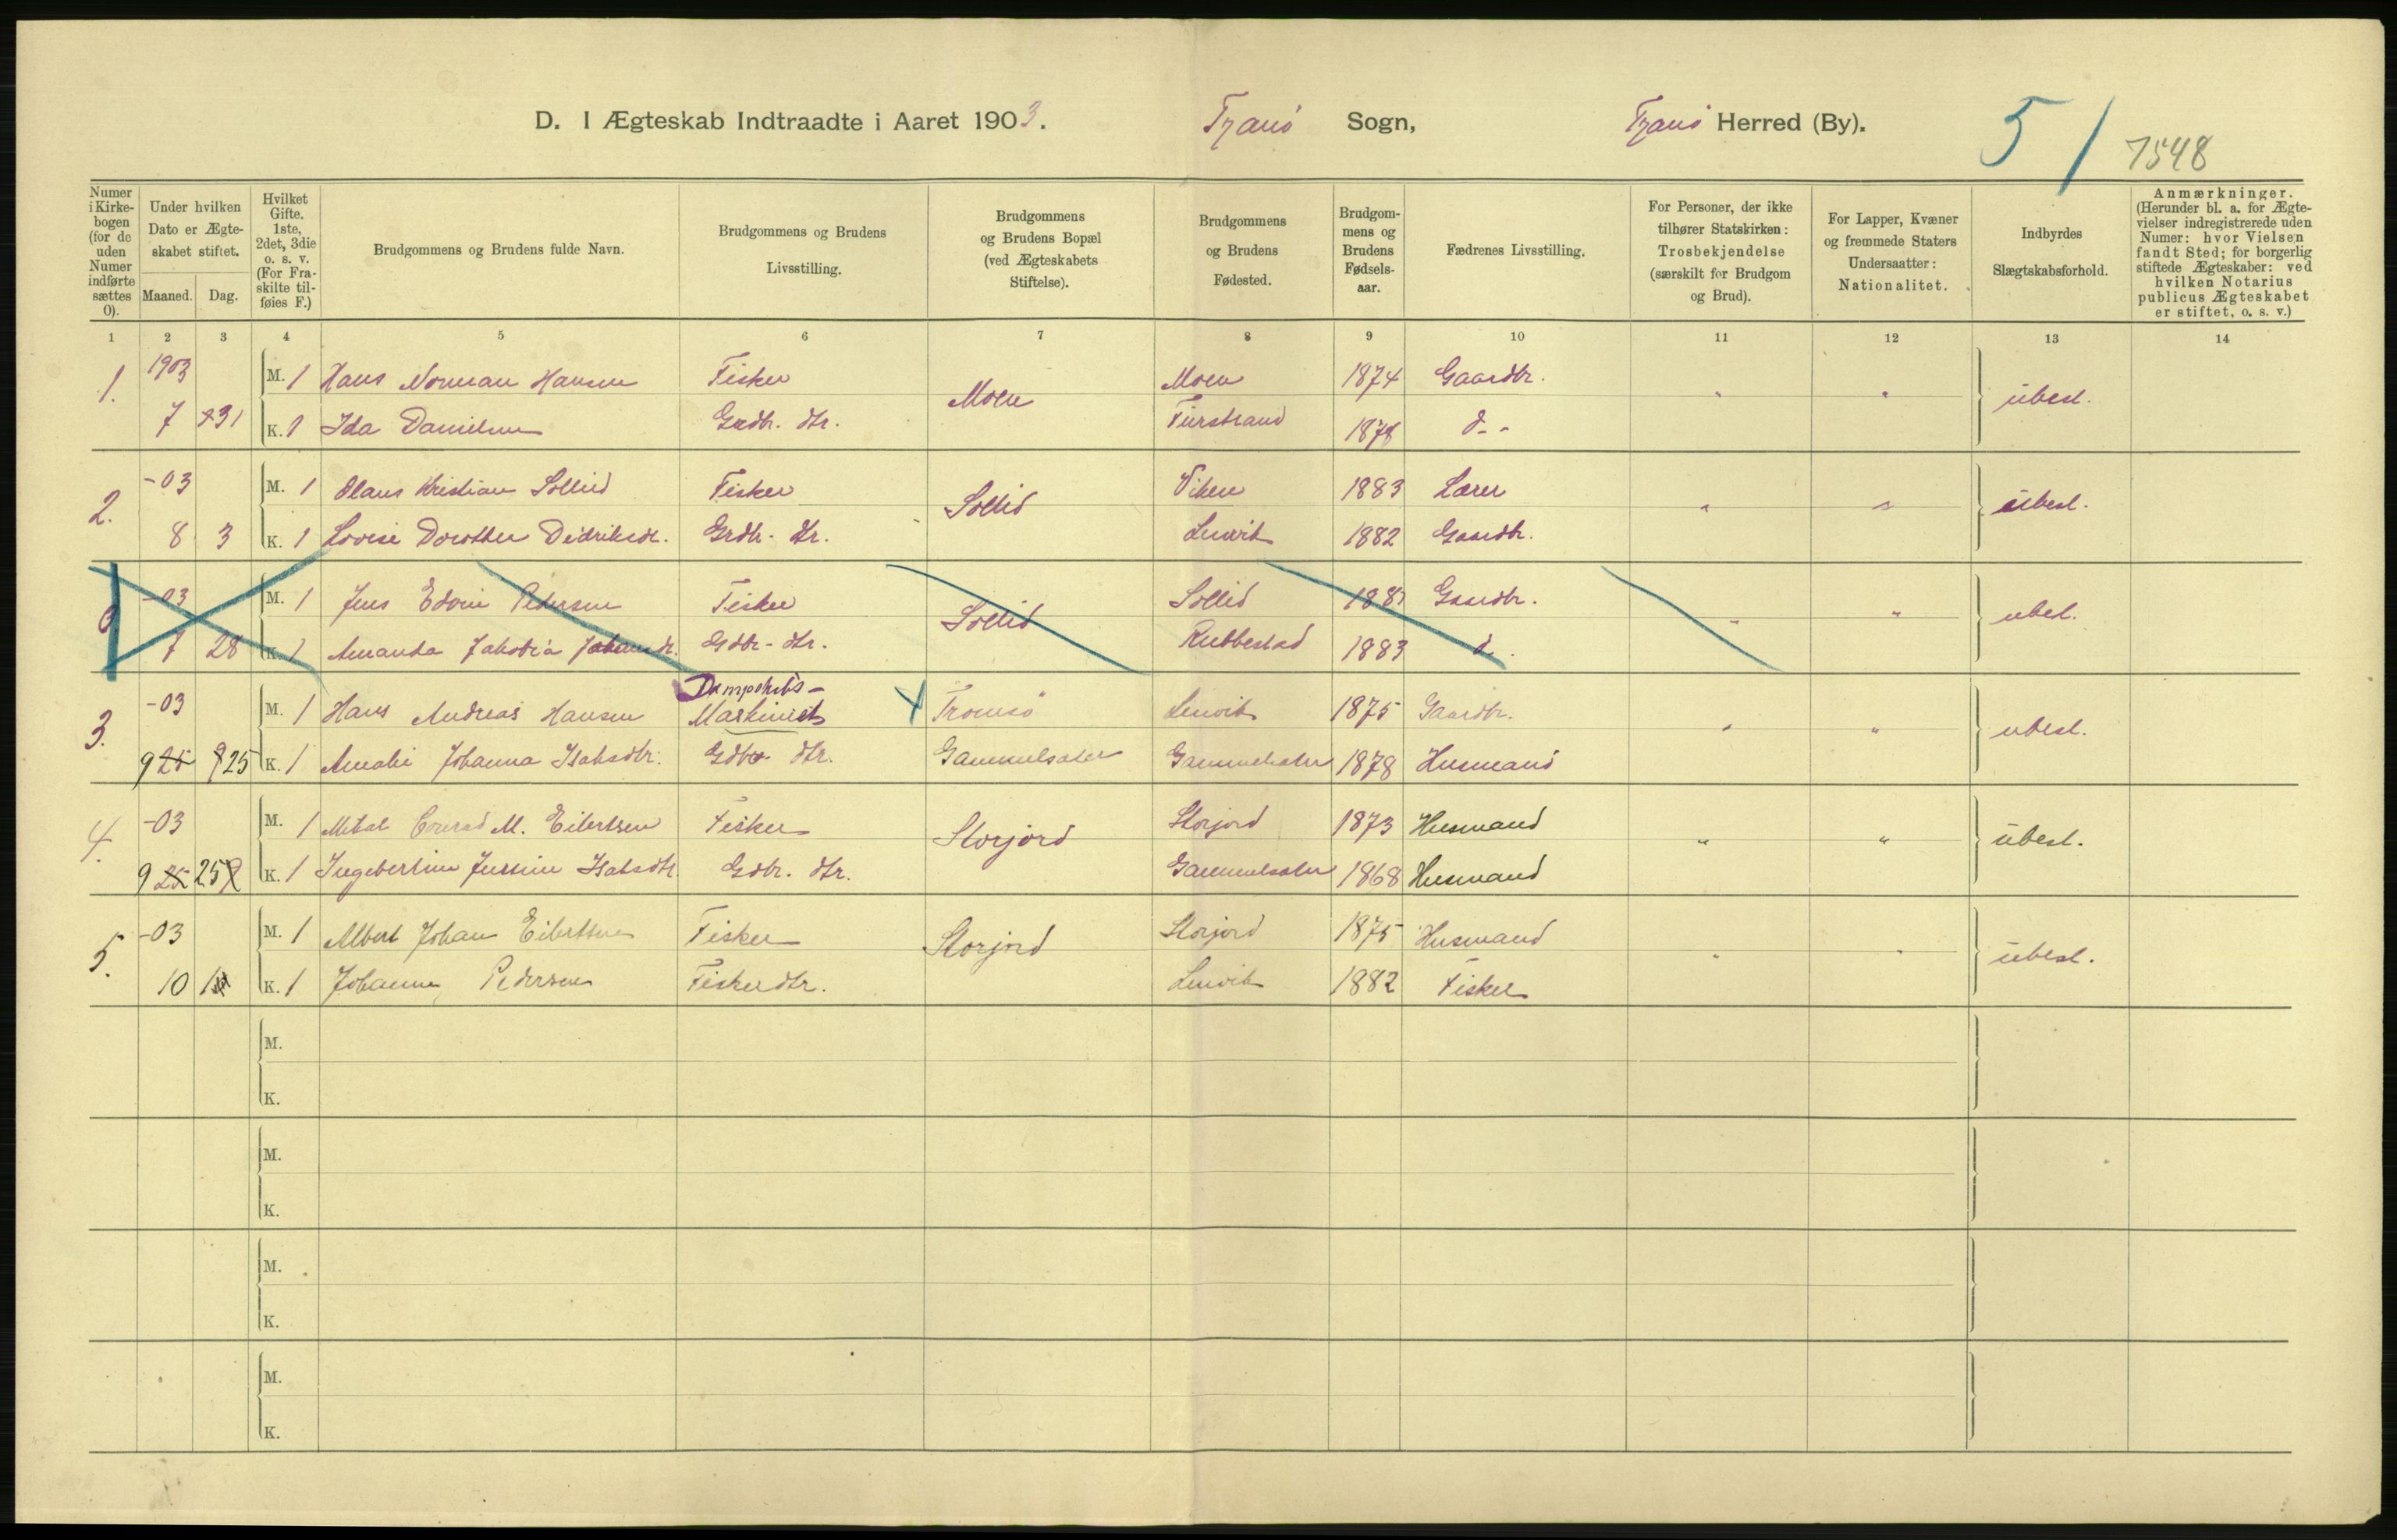 D. I Ægteskab Indtraadte i Aaret 1903. Tranö Sogn, Tranö Herred (By). 5 / 7548
Numer i Kirkebogen (for de uden Numer indførte sættes 0).
Under hvilken Dato er Ægteskabet stiftet.
Maaned. Dag.
Hvilket Gifte. 1ste, 2det, 3die o. s. v. (For Fraskilte tilføies F.)
Brudgommens og Brudens fulde Navn.
Brudgommens og Brudens Livsstilling.
Brudgommens og Brudens Bopæl (ved Ægteskabets Stiftelse).
Brudgommens og Brudens Fødested.
Brudgommens og Brudens Fødselsaar.
Fædrenes Livsstilling.
For Personer, der ikke tilhører Statskirken: Trosbekjendelse (særskilt for Brudgom og Brud).
For Lapper, Kvæner og fremmede Staters Undersaatter: Nationalitet.
Indbyrdes Slægtskabsforhold.
Anmærkninger. (Herunder bl. a. for Ægtevielser indregistrerede uden Numer: hvor Vielsen fandt Sted; for borgerlig stiftede Ægteskaber: ved hvilken Notarius publicus Ægteskabet er stiftet, o. s. v.)
1 2 3 4 5 6 7 8 9 10 11 12 13 14
1. 1903 M. 1 Hans Norman Hansen Fisker Moen Moen 1874 Gaardbr. " " ubesl.
7 31 K. 1 Ida Danielsen Grdbr. dtr. Furstrand 1878 d--
2. -03 M. 1 Olaus Kristian Sollid Fisker Sollid Viken 1883 Lærer " " ubesl.
8 3 K. 1 Lovise Dorothea Didriksdt. Grdbr. dtr. Lenvik 1882 Gaardbr.
-03 M. 1 Jens Edvin Pedersen Fisker Sollid Sollid 188 Gaardbr. " " ubesl.
7 28 K. 1 Amanda Jakobia Grdbr. dtr. Rubbestad 1883 d.
3. -03 M. 1 Hans Andreas Hansen Dampskibs-Maskinist Tromsö Lenvik 1875 Gaardbr. " " ubesl.
9 25 K. 1 Amalie Johanna Isaksdtr. Gdbr. dtr. Gammelsæter Gammelsæter 1878 Husmand
4. -03 M. 1 Conrad M. Eilertsen Fisker Storjord Storjord 1873 Husmand " " ubesl.
9 25 K. 1 Isaksdtr. Gdbr. dtr. Gammelsæter 1868 Husmand
5. -03 M. 1 Albert Johan Eilertsen Fisker Storjord Storjord 1875 Husmand " " ubesl.
10 K. 1 Johanna Pedersen Fiskerdtr. Lenvik 1882 Fisker
M.
K.
M.
K.
M.
K.
M.
K.